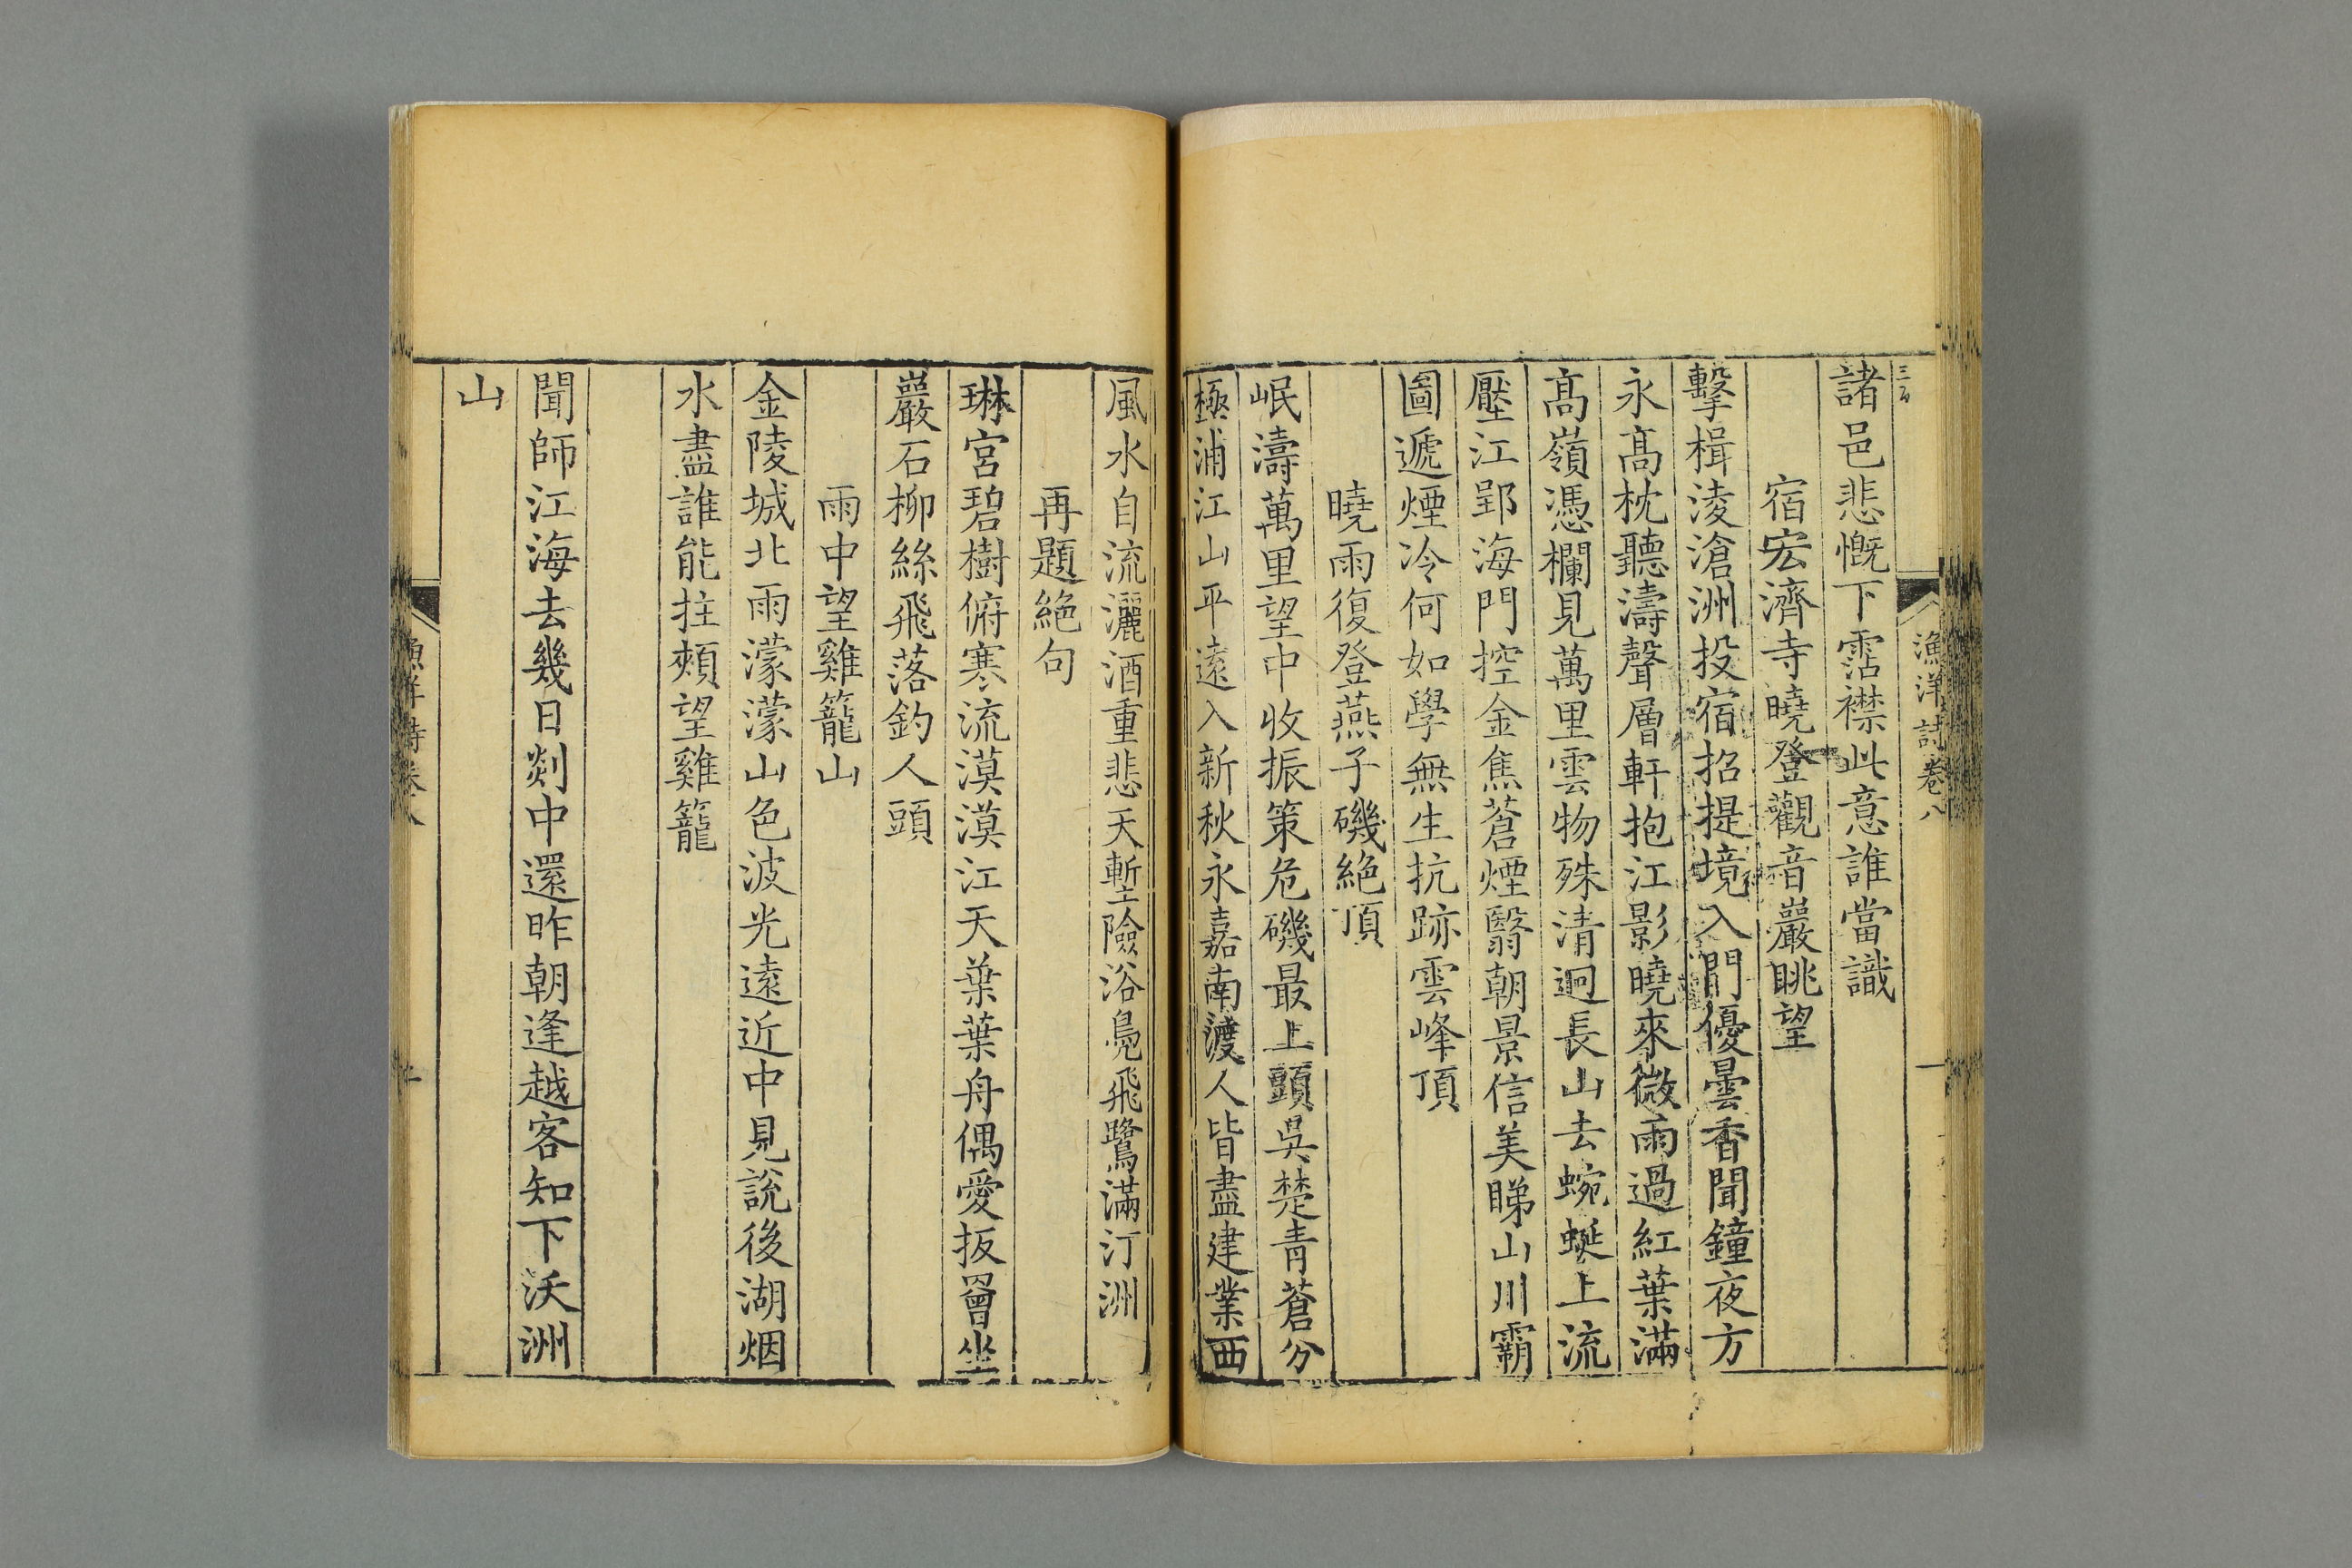 漁洋詩卷八
一
諸邑悲慨下霑襟此意誰當識
宿宏濟寺曉登觀音巖眺望
擊楫淩滄洲投宿招提境入門優曇香聞鐘夜方
永高枕聽濤聲層軒抱江影曉來微雨過紅葉滿
高嶺憑欄見萬里雲物殊清迥長山去蜿蜒上流
壓江郢海門控金焦蒼煙翳朝景信美睇山川霸
圖遞煙冷何如學無生抗跡雲峰頂
曉雨復登燕子磯絕頂
岷濤萬里望中收振策危磯最上頭吳楚青蒼分
極浦江山平遠入新秋永嘉南渡人皆盡建業西
風水自流灑酒重悲天塹險浴鳧飛鷺滿汀洲
再題絕句
琳宮碧樹俯寒流漠漠江天葉葉舟偶愛扳罾坐
巖石柳絲飛落釣人頭
雨中望雞籠山
金陵城北雨濛濛山色波光遠近中見說後湖烟
水盡誰能拄頰望雞籠
聞師江海去幾日剡中還昨朝逢越客知下沃洲
山
漁洋詩卷八